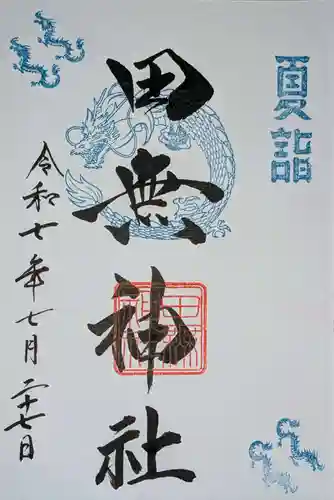 夏詣
田無神社
令和七年七月二十七日